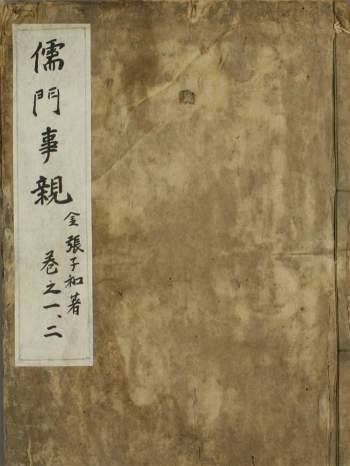 儒門事親
金張子和著
卷之一、二